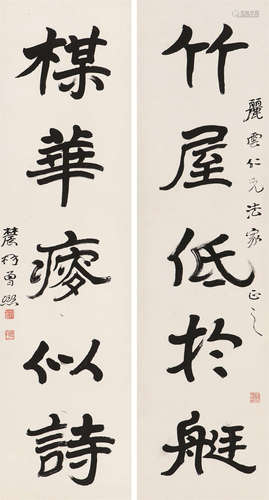 竹屋低於艇
麗雲仁兄法家正之
楳華瘦似詩
農髯曾熙